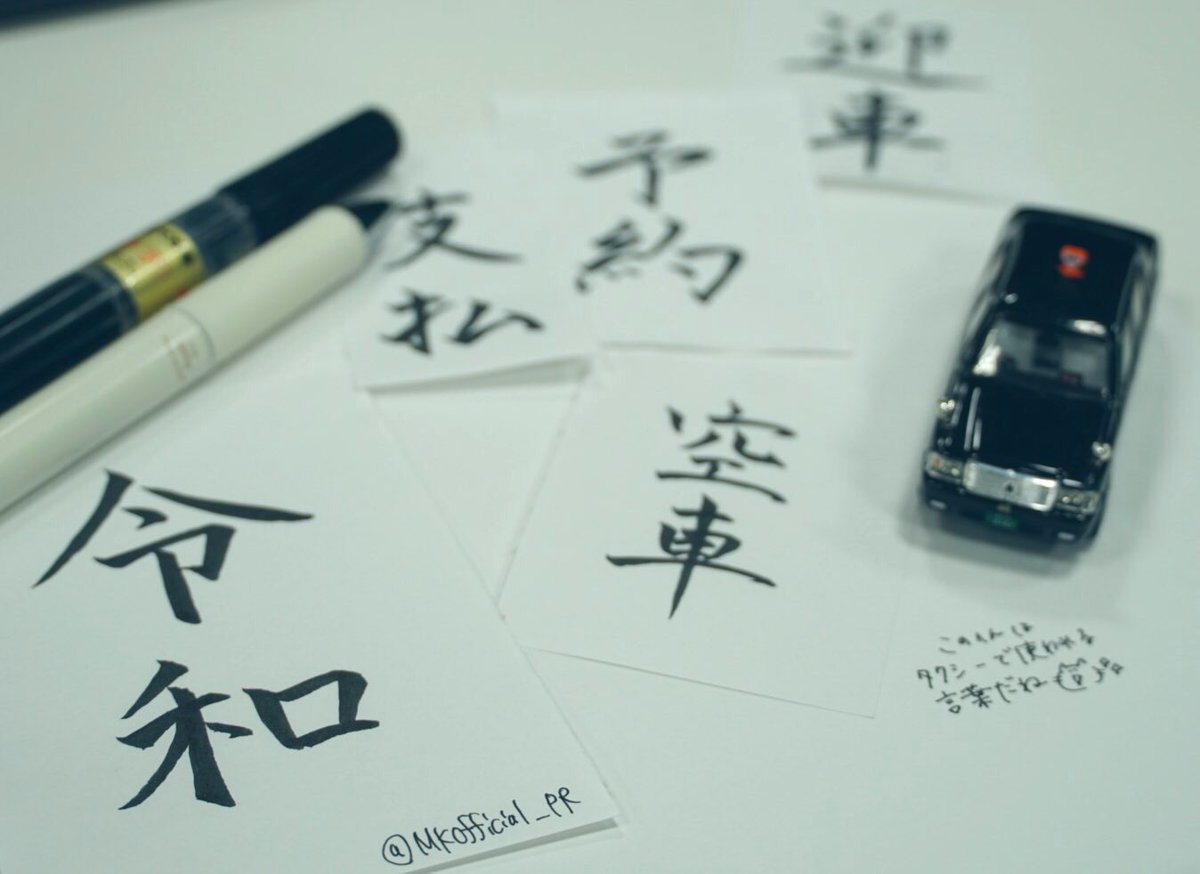 迎
車
予
約
支
払
空
車
令
和
@MKofficial_PR
このへんは
タクシーで使われる
言葉だね